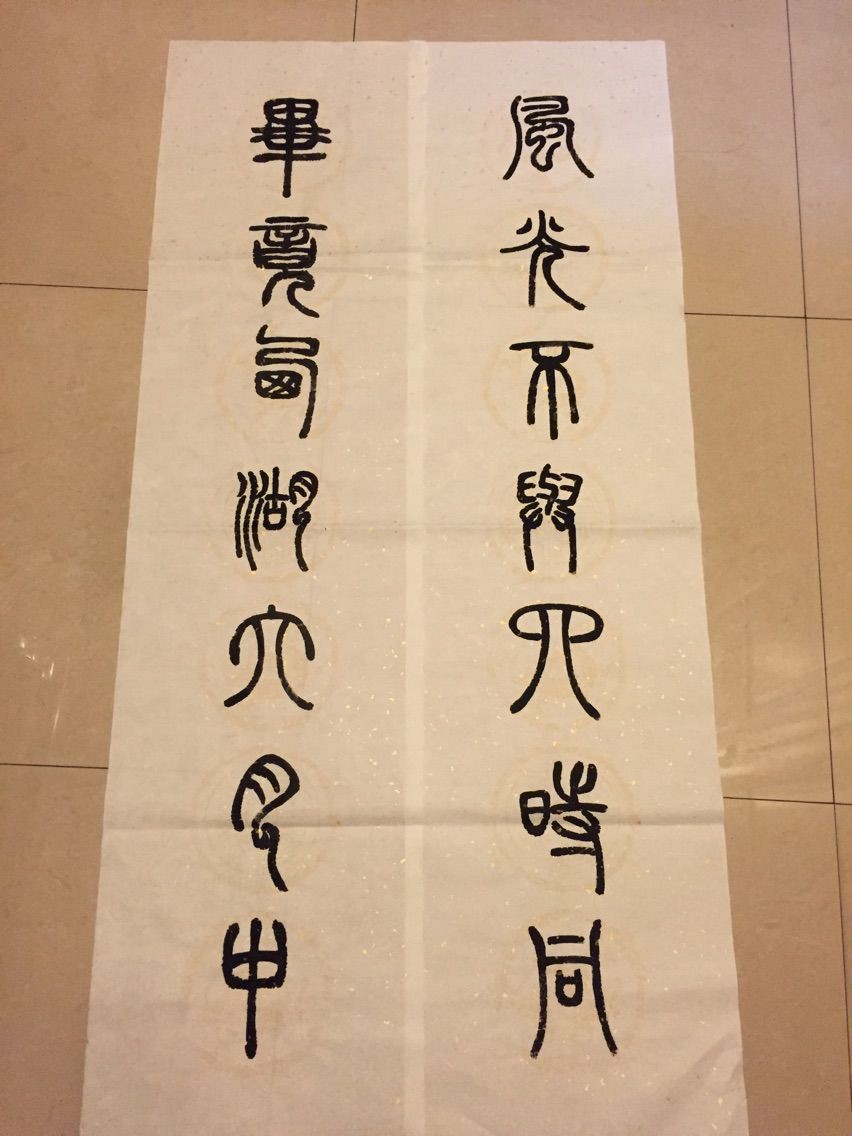 畢竟西湖六月中
風光不與四時同